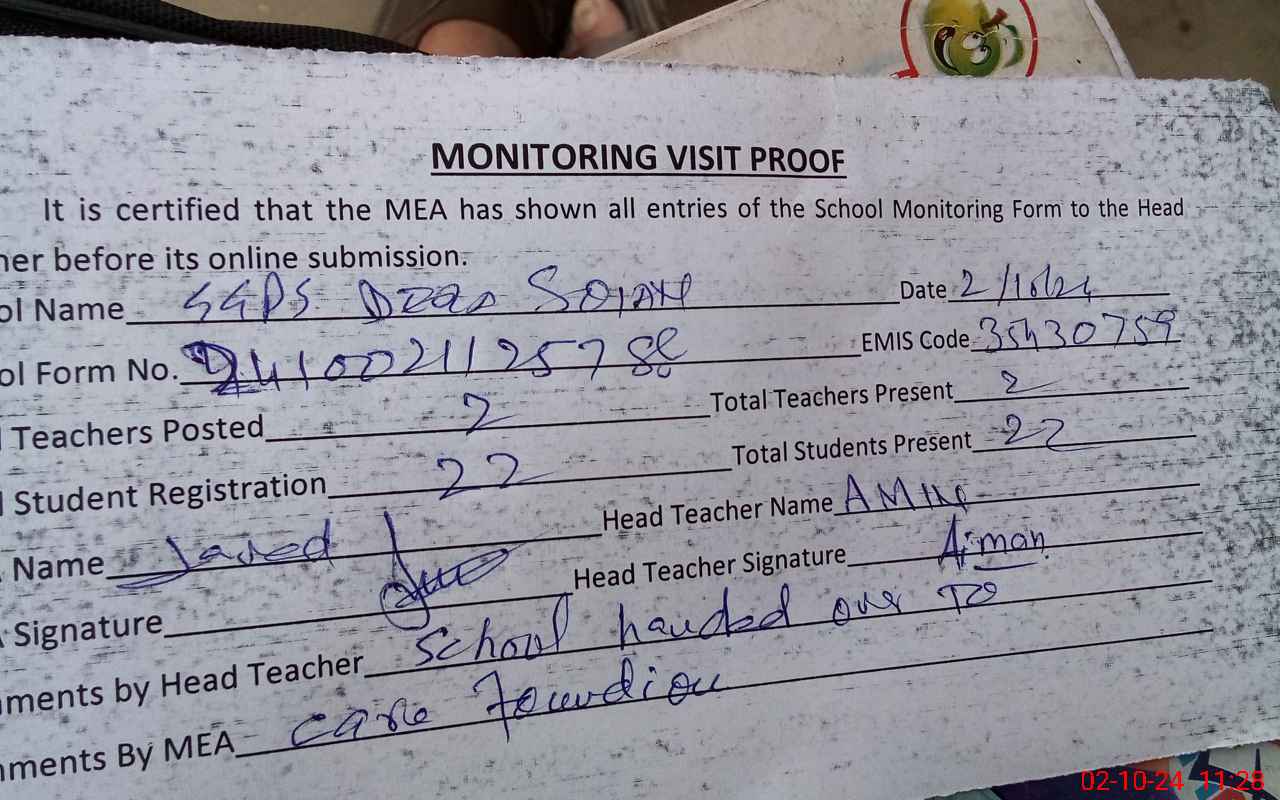 MONITORING VISIT PROOF
It is certified that the MEA has shown all entries of the School Monitoring Form to the Head
her before its online submission.
ol Name GGPS Soian Date 2/10/24
ol Form No. 241002112578 EMIS Code 35430759
Teachers Posted 2 Total Teachers Present 2
Student Registration 22 Total Students Present 22
Name Javed Head Teacher Name
Signature Head Teacher Signature Aiman
ments by Head Teacher School handed over to
ments By MEA care Foundion
02-10-24 11:28